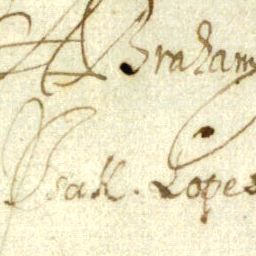 Abraham
Isak. Lopes